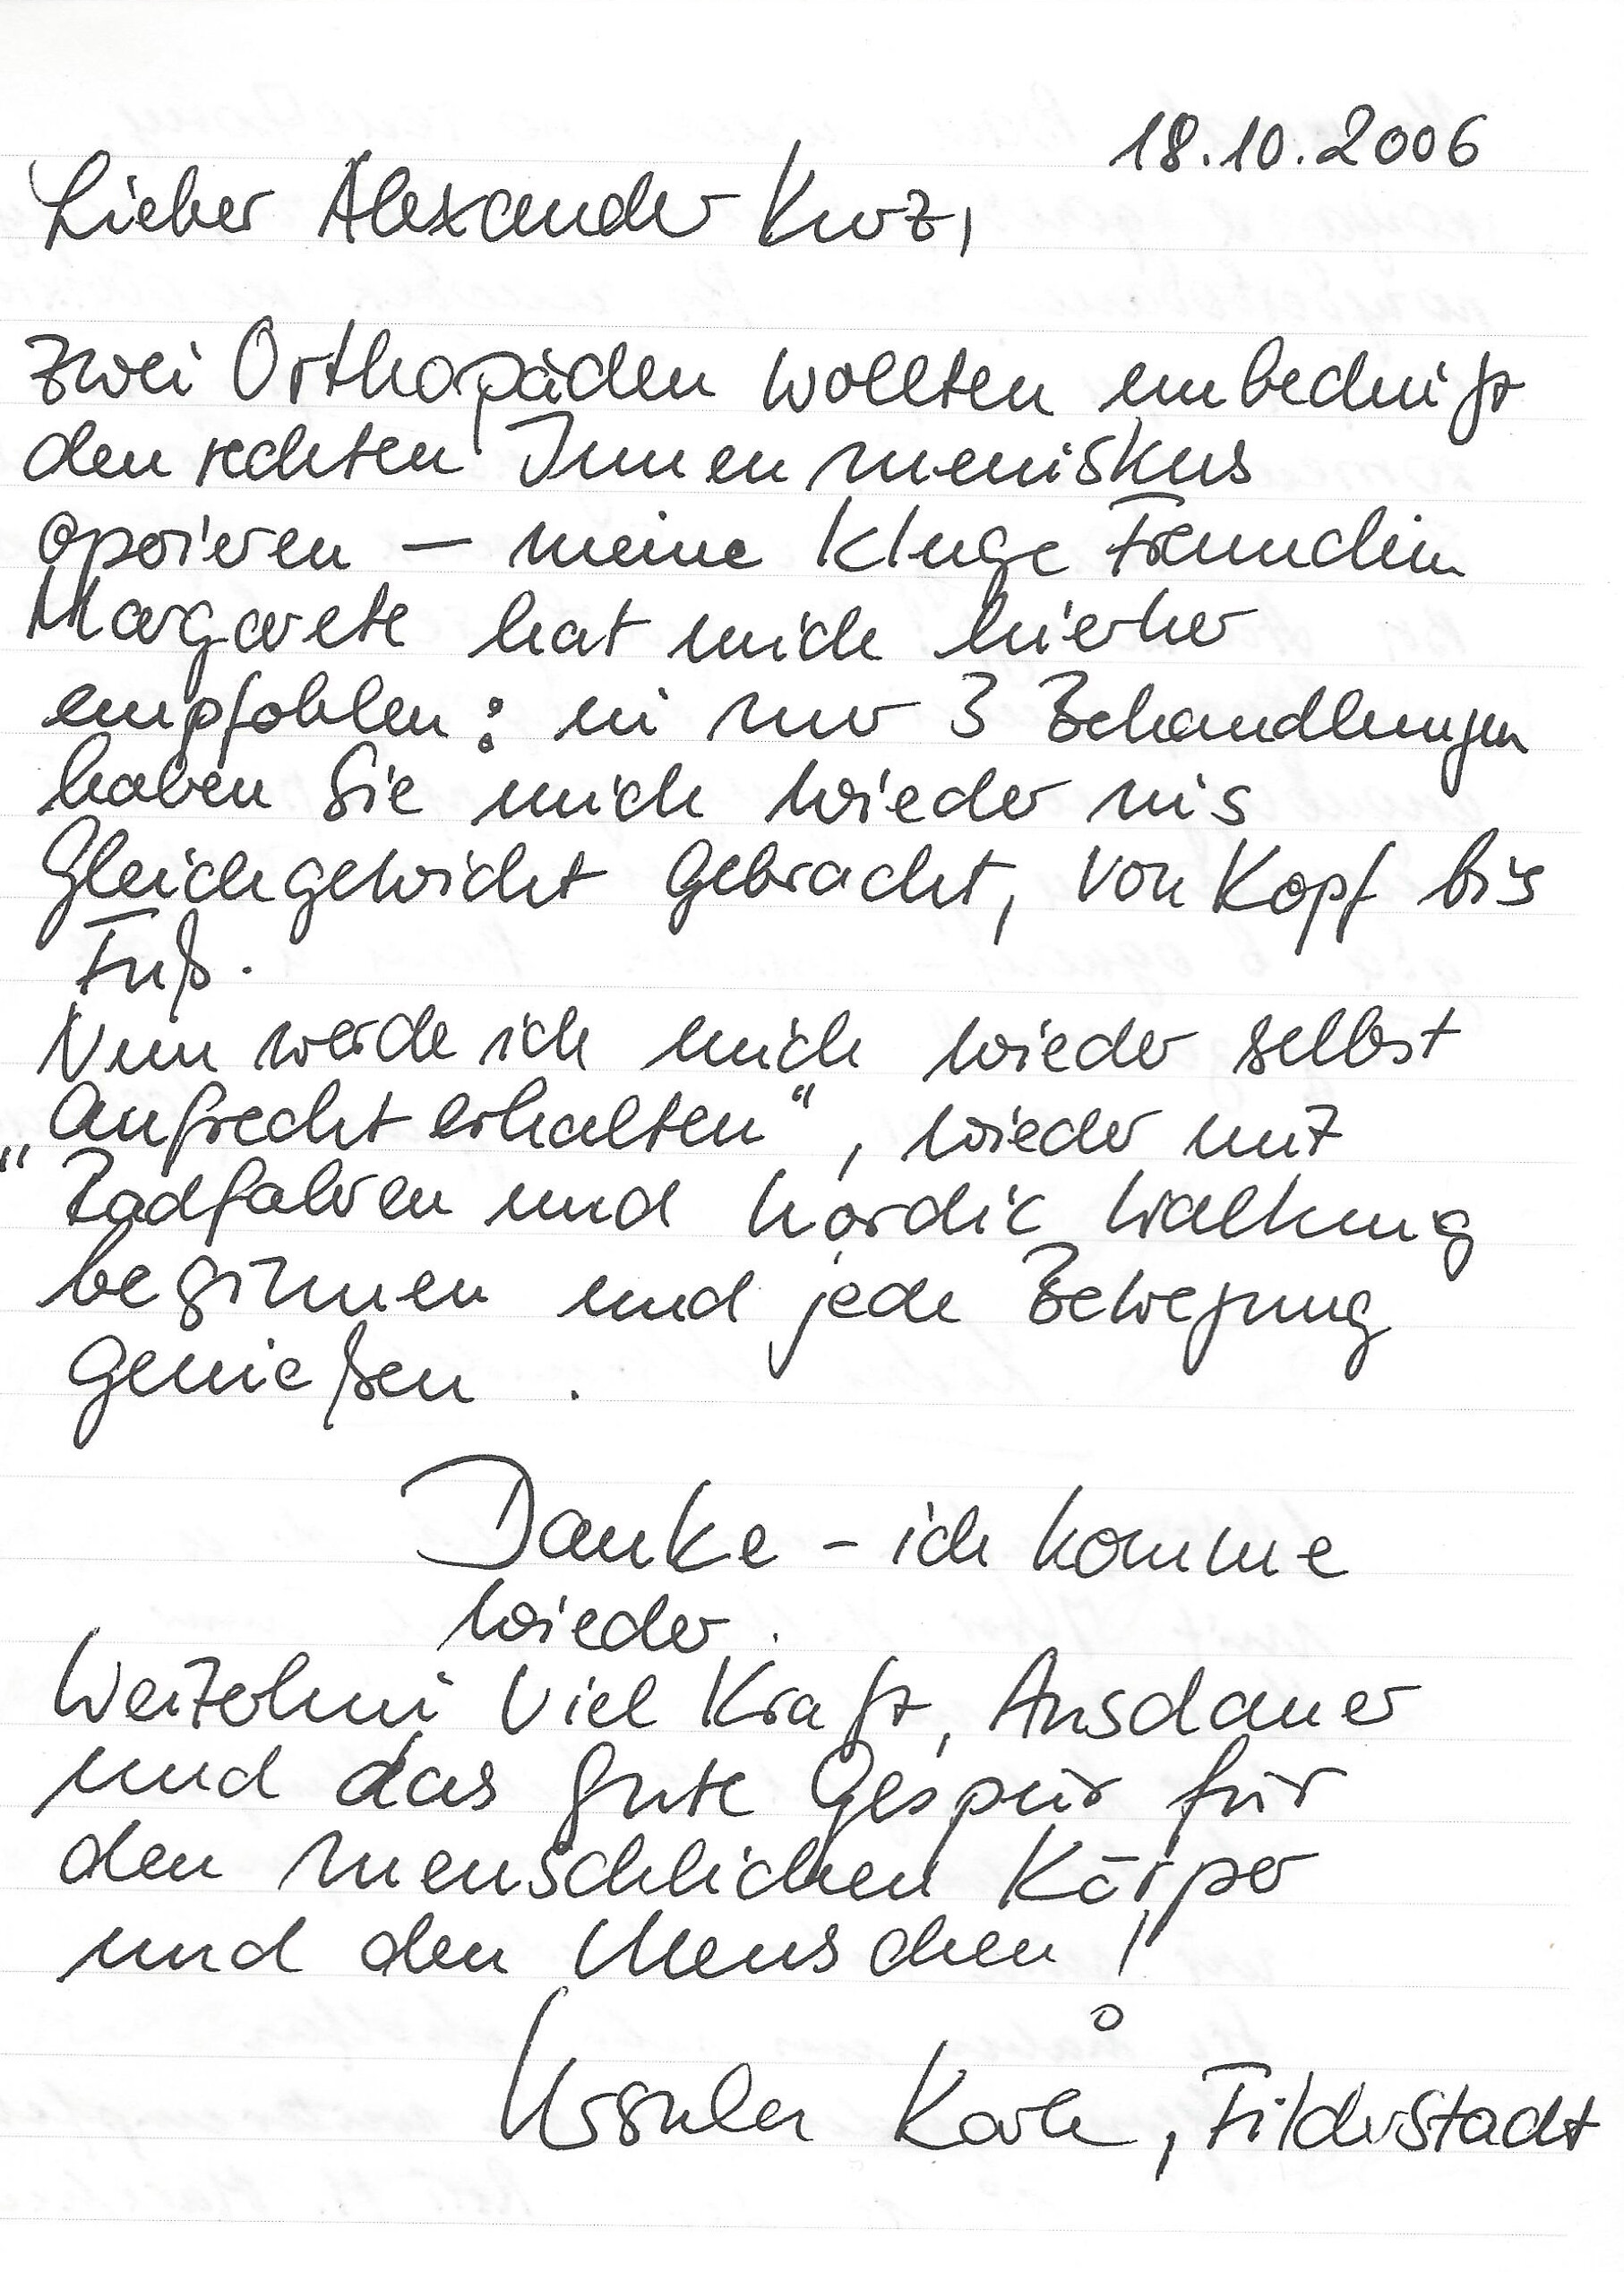 18.10.2006
Lieber Alexander Kurz,
zwei Orthopäden wollten unbedingt
den rechten Innenmeniskus
operieren – meine kluge Freundin
Margarete hat mich hierher
empfohlen: in nur 3 Behandlungen
haben Sie mich wieder ins
Gleichgewicht gebracht, von Kopf bis
Fuß.
Nun werde ich mich wieder selbst
„Aufrecht erhalten“, wieder mit
"Radfahren und nordic walking
beginnen und jede Bewegung
genießen.
Danke – ich komme
wieder.
Weiterhin viel Kraft, Ausdauer
und das gute Gespür für
den menschlichen Körper
und den Menschen!
Ursula, Filderstadt